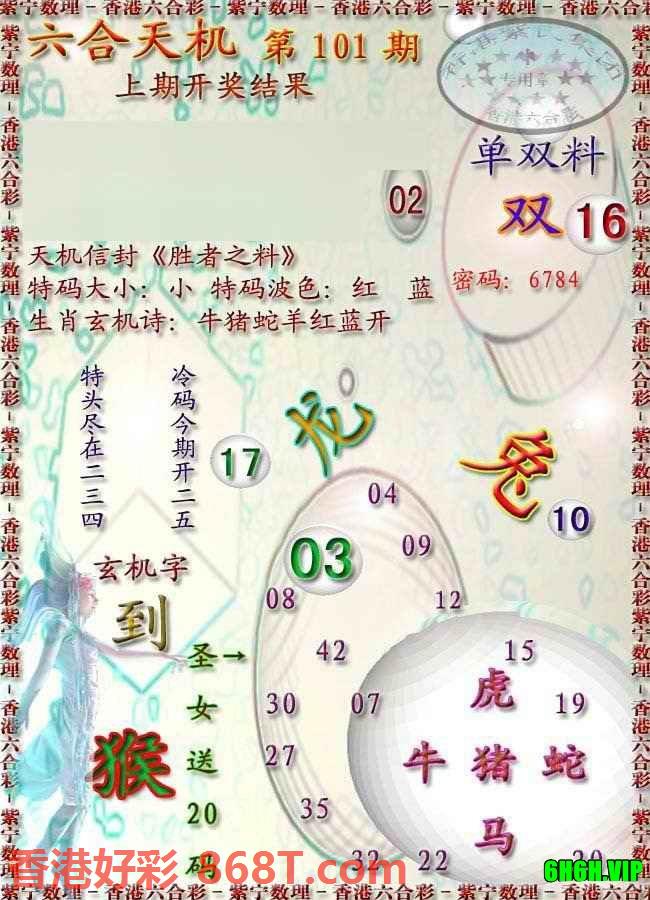 紫宁数理－香港六合彩－紫宁数理－香港六合彩－紫宁数理－香港六合彩－紫宁
六合天机 第 101 期
上期开奖结果
专用章
单双料
双 16
02
天机信封《胜者之料》
特码大小：小 特码波色：红 蓝
密码：6784
生肖玄机诗：牛猪蛇羊红蓝开
特头尽在二三四
冷码今期开二五
17
龙
兔
10
03
04
09
08
12
玄机字
到
圣女送20码
→
42
15
30
07
虎
19
猴
27
牛 猪 蛇
35
马
32
22
20
香港好彩 868T.com
6H6H.VIP